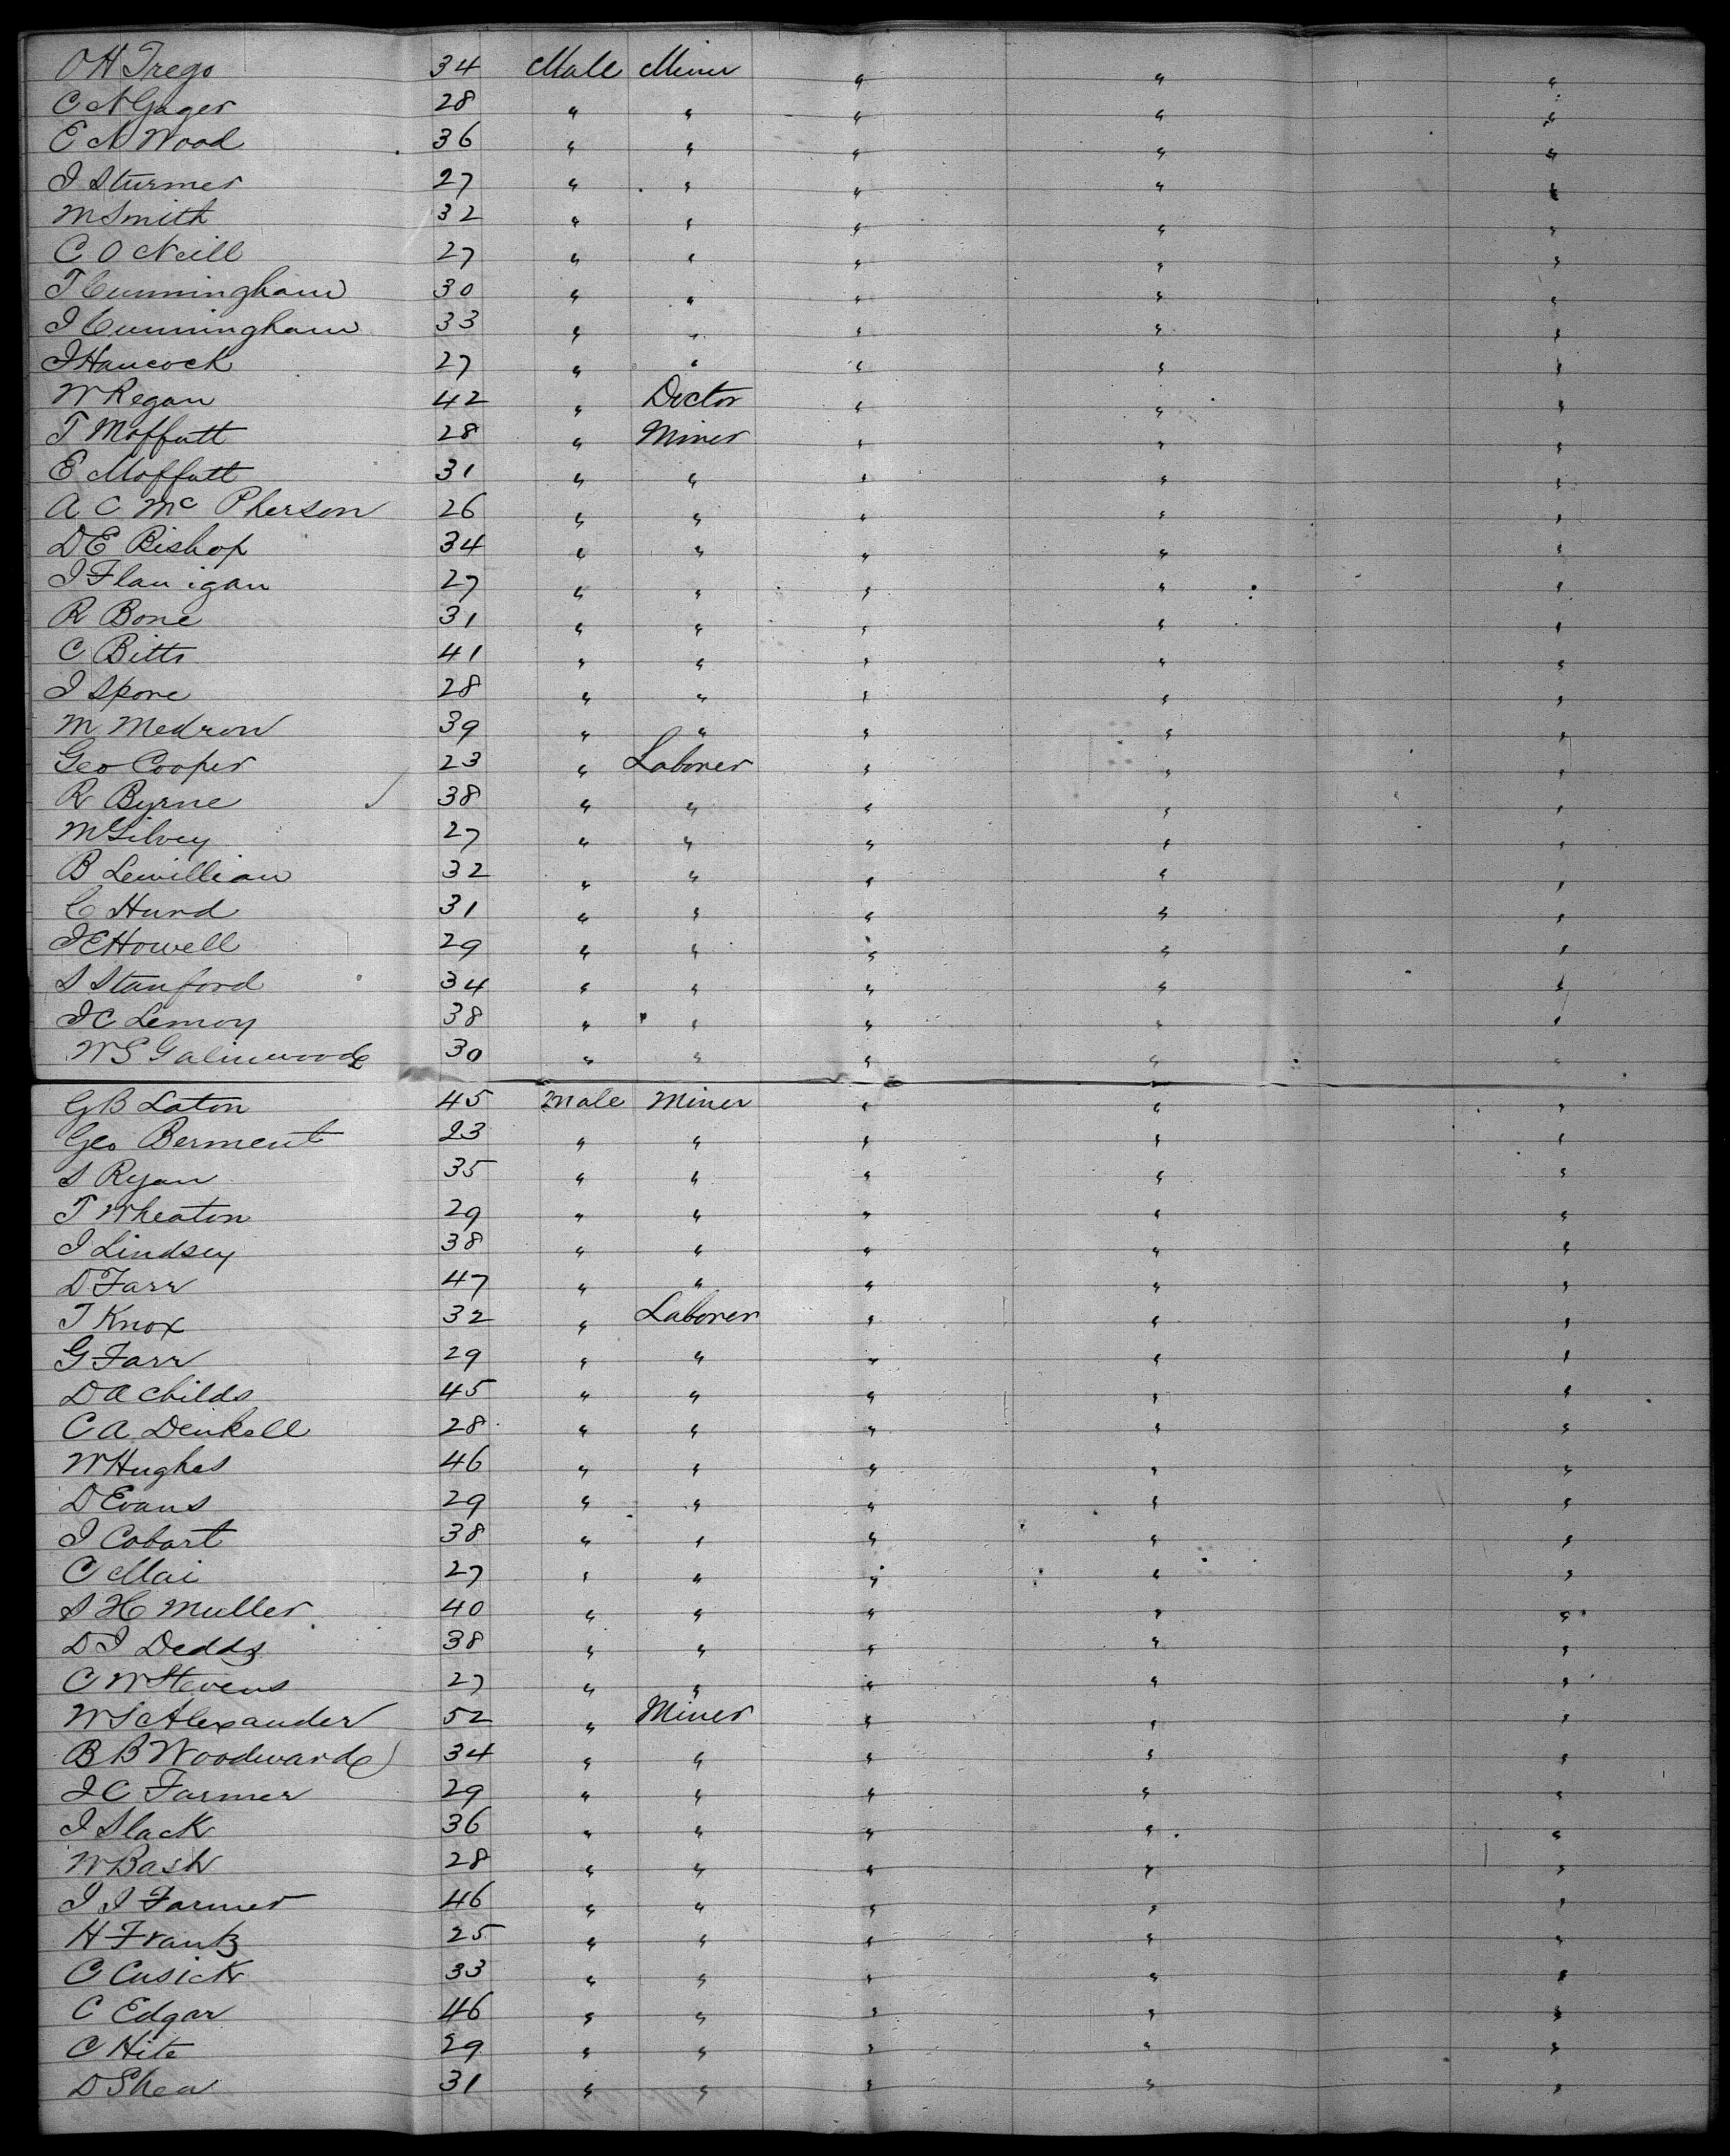 O H Trego 34 Male Miner " " "
C N Gager 28 " " " " "
E N Wood 36 " " " " "
J Sturmer 27 " " " " "
M Smith 32 " " " " "
C O Neill 27 " " " " "
T Cunningham 30 " " " " "
J Cunningham 33 " " " " "
J Hancock 27 " " " " "
W Regan 42 " Doctor " " "
T Moffatt 28 " Miner " " "
E Moffatt 31 " " " " "
A C Mc Pherson 26 " " " " "
D E Bishop 34 " " " " "
J Flanigan 27 " " " " "
R Bone 31 " " " " "
C Bitts 41 " " " " "
J Spore 28 " " " " "
M Medron 39 " " " " "
Geo Cooper 23 " Laborer " " "
R Byrne 38 " " " " "
McGilvey 27 " " " " "
B Lewillian 32 " " " " "
C Hurd 31 " " " " "
J E Howell 29 " " " " "
S Stanford 34 " " " " "
J C Lemoy 38 " " " " "
W S Galinwood 30 " " " " "
G B Laton 45 Male Miner " " "
Geo Berment 23 " " " " "
S Ryan 35 " " " " "
T Wheaton 29 " " " " "
J Lindsey 38 " " " " "
D Farr 47 " " " " "
T Knox 32 " Laborer " " "
G Farr 29 " " " " "
D A Childs 45 " " " " "
C A Denkell 28 " " " " "
W Hughes 46 " " " " "
D Evans 29 " " " " "
J Cobart 38 " " " " "
C Mai 27 " " " " "
S H Muller 40 " " " " "
D J Dedds 38 " " " " "
C W Stevens 27 " " " " "
W S Alexander 52 " Miner " " "
B B Woodward 34 " " " " "
J C Farmer 29 " " " " "
J Slack 36 " " " " "
W Bash 28 " " " " "
J J Farmer 46 " " " " "
H Frantz 25 " " " " "
C Cusick 33 " " " " "
C Edgar 46 " " " " "
C Hite 29 " " " " "
D Shea 31 " " " " "